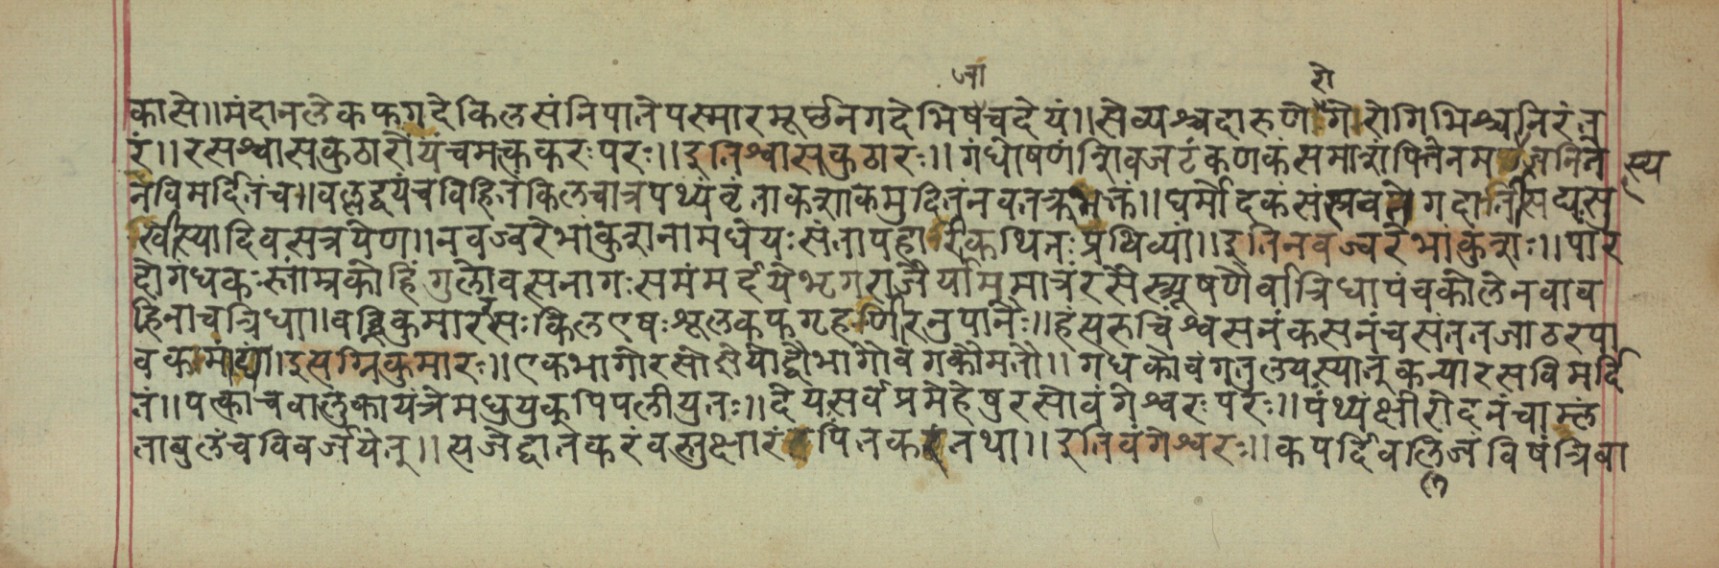 जा रो
कासे॥मंदानलेकफगदेकिलसंनिपातेपस्मारमूर्छनगदेभिषेचदेयं॥सेव्यश्चदारुणेगैरोगिभिश्चनिरंत
रं॥रसश्वासकुठारोयंचमत्ककरःपरः॥इतिश्वासकुठारः॥गंधोषणंशिवजटंकणकंसमाशंपित्तेनम जनिते स्य
नविमर्दितंच॥वल्लद्वयंचविहितंकिलचात्रपथ्यंवृंताकशाकमुदितंनवतक्रभक्तं॥घर्मोदकंसंस्रवते गदार्तिसद्यःसु
खीस्यादिवसत्रयेण॥नवज्वरेभांकुशनामधेयःसंतापहारीकथितःप्रथिव्यां॥इतिनवज्वरेभांकुशः॥पार
दोगंधकःस्ताम्रकोहिंगुलोवत्सनागःसमंमर्दयेभृगराजैर्याममात्रंरसैस्त्र्यूषणैर्वात्रिधापंचकोलेनवाव
ह्निनाचत्रिधा॥वह्निकुमाररसःकिलएषःशूलकफगृहणिरनुपानैः॥हंसरुचिंश्वसनंकसनंचसंततजाठरपा
वकमांद्यं॥इत्यग्निकुमारः॥एकभागोरसोज्ञेयोद्वौभागोवंगकौमतौ॥गंधकोवंगतुलयस्यात्कन्यारसविमर्दि
तं॥पत्काचवालुकायंत्रेमधुयुक्पिपलीयुतः॥देयसर्वप्रमेहेषुरसोवंगेश्वरःपरः॥पंथ्यंक्षीरोदनंचाम्लं
तांबुलंचविवर्जयेत्॥त्यजेद्वातकरंवस्तुक्षारं पित्तकरंतथा॥इतिवंगेश्वरः॥कपर्दिवलिजंविषंत्रिवा
ति